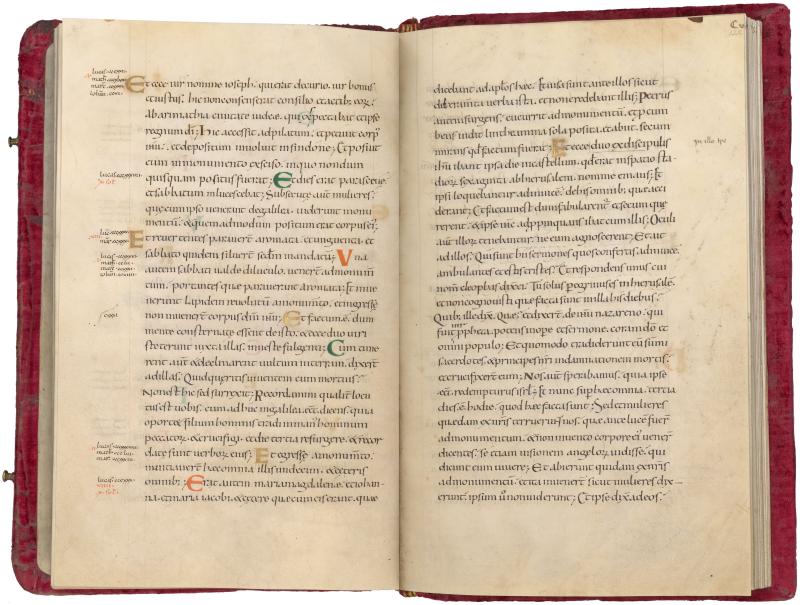 Et ecce uir nomine ioseph. qui erat decurio. uir bonus
et iustus. hic non consenserat consilio et actib; eor̄.
ab arimathia ciuitate iudeae. qui expectabat et ipse
regnum dī; Hic accessit ad pilatum. et petiit corp'
et depositum inuoluit in sindone; Et posuit
eum in monumento exciso. in quo nondum
quisquam positus fuerat; Et dies erat parasceue.
et sabbatum inlucescebat; Subsecutae aut̄ mulieres.
quae cum ipso uenerant de galilea. uiderunt monu
mentū. et quemadmodum positum erat corpus ei';
Et reuertentes parauerunt aromata. et unguenta. et
sabbato quidem siluerūt secdm mandatū; Una
autem sabbati ualde diluculo. uenerūt ad monumtū
eum. portantes quae parauerant aromata; Et inue
nerunt lapidem reuolutū a monumento. et ingressae
non inuenerūt corpus dnī ihū; Et factum ē. dum
mente consternatae essent de isto. ecce duo uiri
steterunt iuxta illas. in ueste fulgenti; Cum time
rent aut̄ et declinarent uultum in terram. dixerūt
ad illas. Quid queritis uiuentem cum mortuis?
Non est hic sed surrexit; Recordamini qualit̄ locu
tus est uobis. cum adhuc in galilea eēt. dicens. quia
oportet filium hominis tradi in man' hominum
peccator̄. et crucifigi. et die tertia resurgere. et recor
datae sunt uerbor̄ eius; Et egressae a monumēto.
nuntiauerūt haec omnia illis undecim. et ceteris
omnib; Erat autem maria magdalene. et iohan
na. et maria iacobi. et ceterae quae cum eis erant. quae
dicebant ad aplōs haec; Et uisa sunt ante illos sicut
deliramenta uerba ista. et non credebant illis; Petrus
autem surgens. cucurrit ad monumentū. et pcum
bens uidit linteamina sola posita. et abiit. secum
mirans qđ factum fuerat; Et ecce duo ex discipulis
ibant ipsa die in castellum. qđ erat in spatio sta
dior̄. sexaginta ab hierusalem. nomine emaus; Et
ipsi loquebantur ad inuicē. de his omnib; quae acci
derant; Et factum est dum fabularent̄. et secum que
rerent. et ipse iħc appropinquans ibat cum illis; Oculi
aut̄ illor̄ tenebantur. ne eum agnoscerent; Et ait
ad illos. Qui sunt hi sermones quos confertis ad inuicē.
ambulantes et estis tristes? Et respondens unus cui
nom̄ cleophas dixit ei. Tu solus pegrinus es in hierusalē.
et non cognouisti quae facta sunt in illa his diebus?
Quib; ille dixit. Quae? et dixerūt. de ihū nazareno. qui
fuit ppheta. potens in opere et sermone. coram dō et
omni populo; Et quomodo tradiderunt eū sūmi
sacerdotes. et principes nrī in damnationem mortis.
et crucifixerūt eum; Nos aut̄ sperabamus. quia ipse
eēt redempturus isrl; Et nunc sup haec omnia. tertia
dies ē hodie. quod haec facta sunt; Sed et mulieres
quaedam ex nrīs terruerunt nos. quae ante lucē fuerūt
ad monumentum. et non inuento corpore ei' uenerūt
dicentes. se etiam uisionem angelor̄ uidisse. qui
dicunt eum uiuere; Et abierunt quidam ex nrīs
ad monumentū. et ita inuenerūt sicut mulieres dixe
erunt. ipsum ū non uiderunt; Et ipse dixit ad eos.